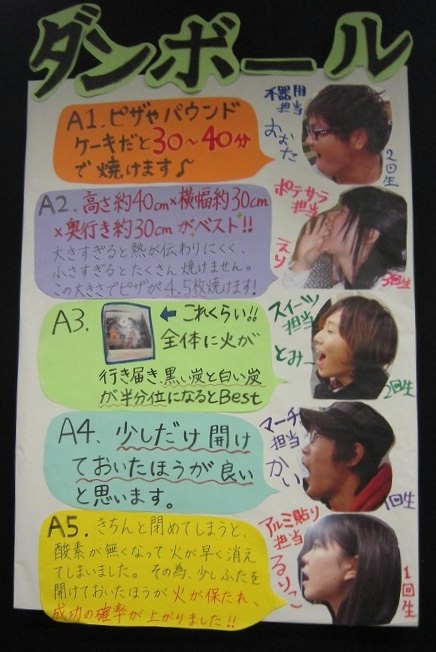 ダンボール
A1.ピザやパウンド
ケーキだと30〜40分
で焼けます♪
不器用
担当
おおた
2回生
A2.高さ約40cm×横幅約30cm
×奥行き約30cmがベスト!!
大きすぎると熱が伝わりにくく、
小さすぎるとたくさん焼けません。
この大きさでピザが4.5枚焼けます!
ポテサラ
担当
えり
3回生
A3.
←これくらい!!
全体に火が
行き届き黒い炭と白い炭
が半分位になるとBest
スイーツ
担当
とみー
2回生
A4、少しだけ開け
ておいたほうが良い
と思います。
マーチ
担当
かい
1回生
A5.きちんと閉めてしまうと、
酸素が無くなって火が早く消え
てしまいました。その為、少しふたを
開けておいたほうが火が保たれ、
成功の確率が上がりました!!
アルミ貼り
担当
るりっこ
1回生